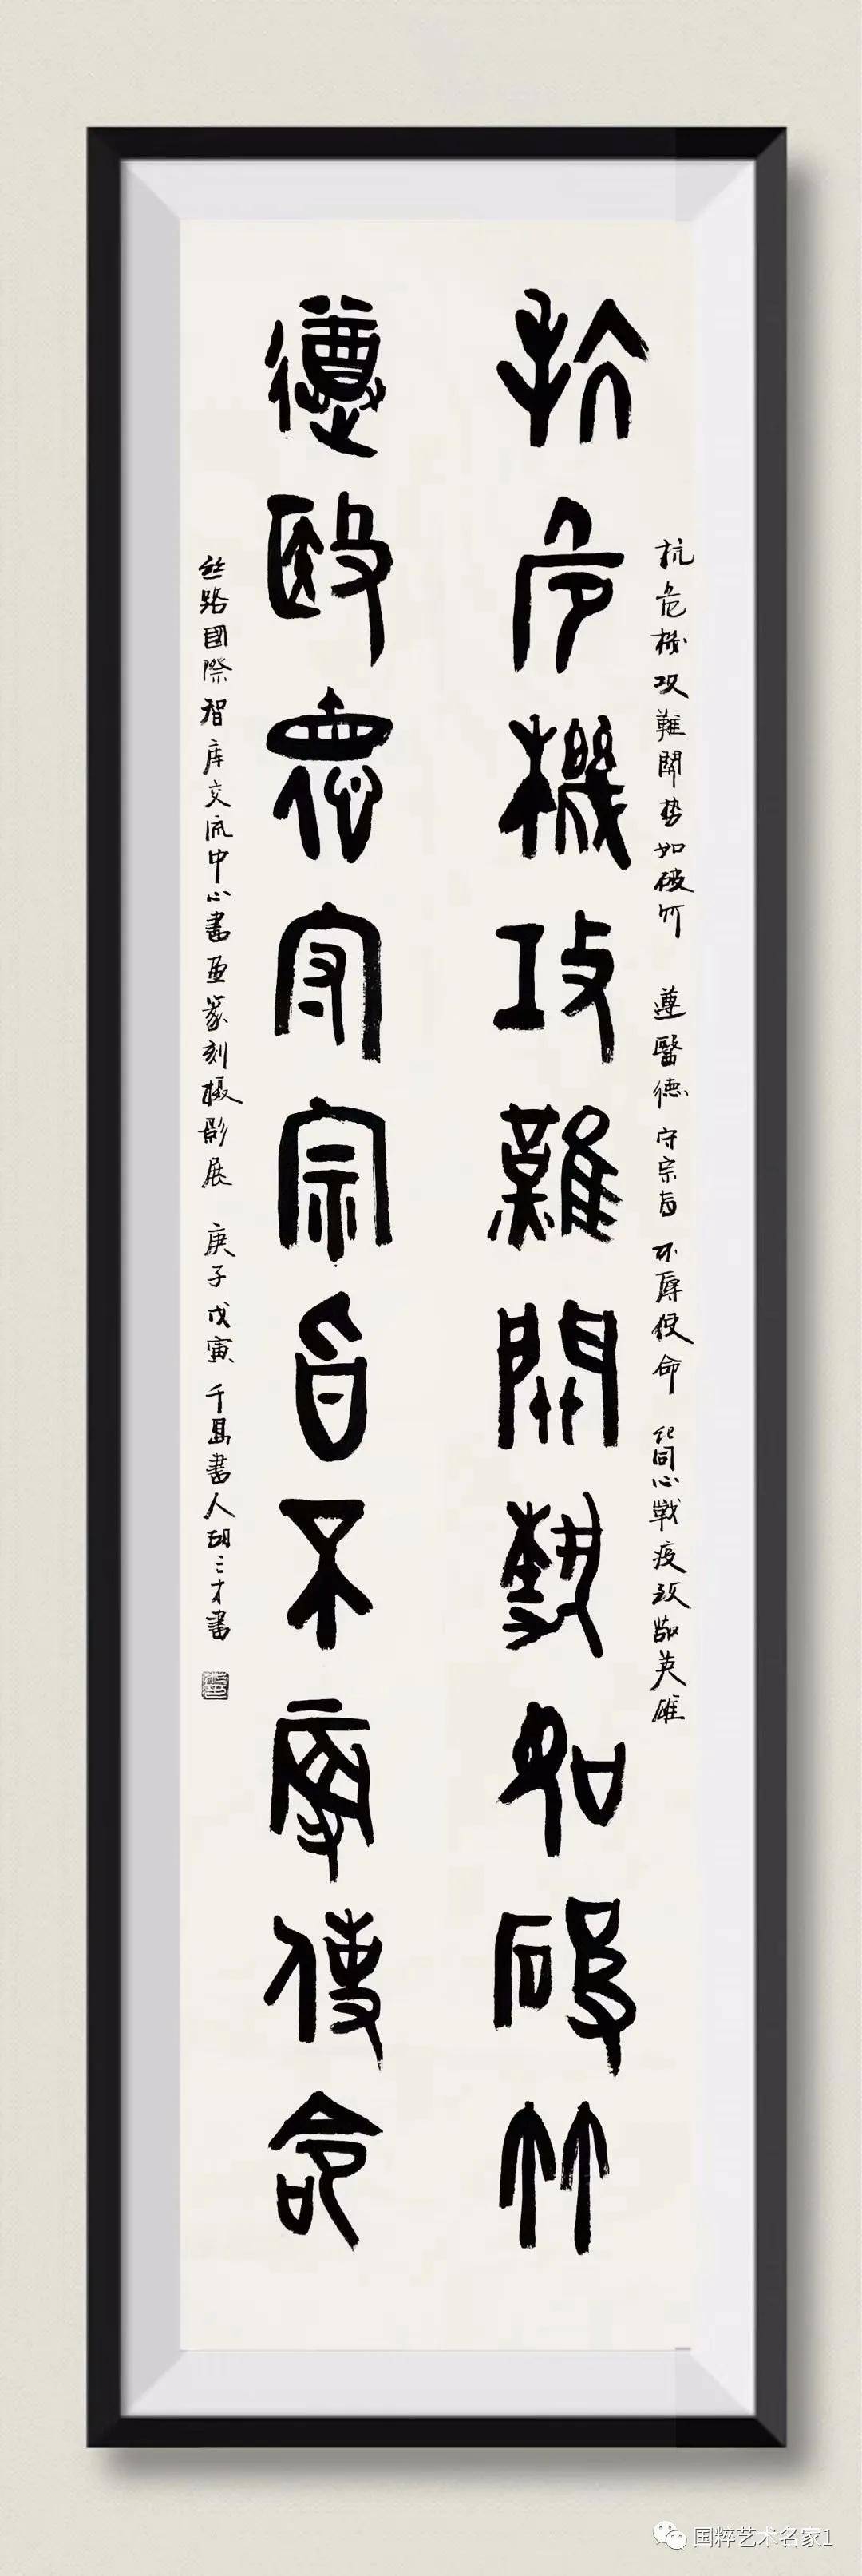 抗危機攻難關勢如破竹
遵醫德守宗旨不辱使命
抗危機攻難關势如破竹 遵醫德守宗旨不辱使命 記同心戰疫致敬英雄
丝路國際智库交流中心書画篆刻摄影展 庚子戊寅 千島書人胡三才書
国粹艺术名家1